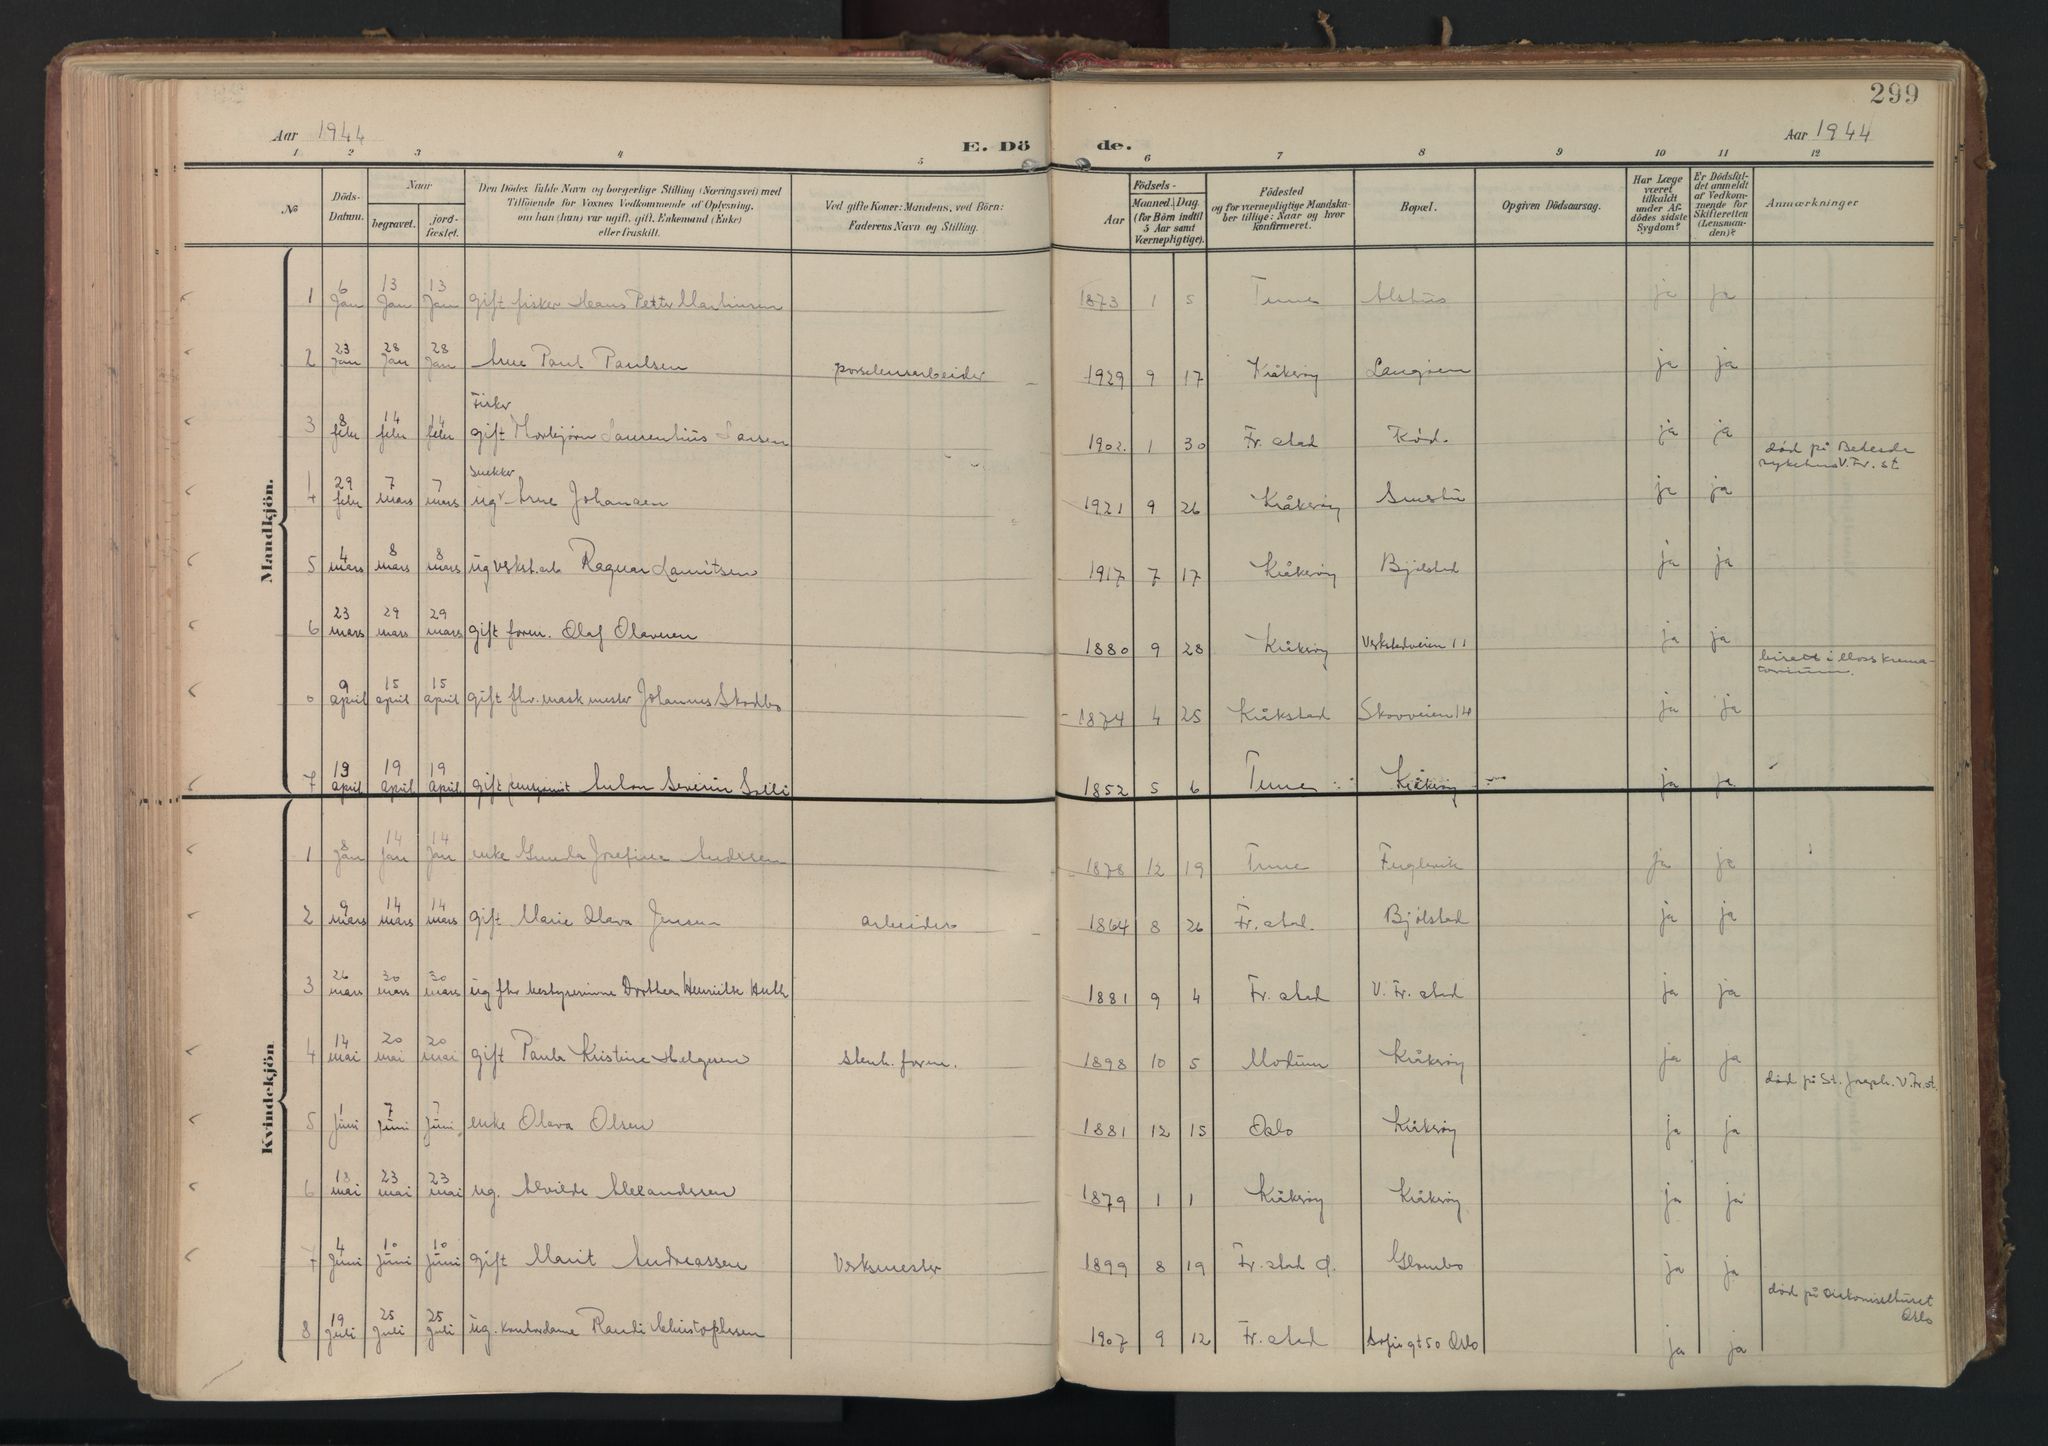 299
Aar 1944
E. Döde.
Aar 1944
1 2 3 4 5 6 7 8 9 10 11 12
No
Döds-Datum.
Naar
begravet.
jordfæstet.
Den Dödes fulde Navn og borgerlige Stilling (Næringsvei) med
Tilföiende for Voxnes Vedkommende af Oplysning,
om han (hun) var ugift, gift, Enkemand (Enke)
eller fraskilt.
Ved gifte Koner: Mandens, ved Börn:
Faderens Navn og Stilling.
Födsels-
Aar
Maaned. Dag.
(for Börn indtil
5 Aar samt
Værnepligtige).
Födested
og for værnepligtige Mandska-
ber tillige: Naar og hvor
konfirmeret.
Bopæl.
Opgiven Dödsaarsag.
Har Læge
været
tilkaldt
under Af-
dödes sidste
Sygdom?
Er Dödsfal-
det anmeldt
af Vedkom-
mende for
Skifteretten
(Lensman-
den)?
Anmærkninger
Mandkjön.
1 6 Jan 13 Jan 13 Jan gift fisker Hans Petter Martinsen 1873 1 5 Tune Alshus ja ja
2 23 Jan 28 Jan 28 Jan Arne Paul Paulsen porselensarbeider 1929 9 17 Kråkerøy Langøen ja ja
Fisker
3 8 febr 14 febr 14 febr gift Thorbjørn Laurentius Larsen 1902 1 30 Fr.stad Rød. ja ja død på Betesda sykehus V. Fr.st.
snekker
4 29 febr 7 mars 7 mars ug Arne Johansen 1921 9 26 Kråkerøy Smertu ja ja
5 4 mars 8 mars 8 mars ug verkst.arb Ragnar Lauritsen 1917 7 17 Kråkerøy Bjølstad ja ja
6 23 mars 29 mars 29 mars gift form. Olaf Olavesen 1880 9 28 Kråkerøy Verkstedveien 11 ja ja
0 9 april 15 april 15 april gift fhv. mask mester Johannes Skodbo 1874 4 25 Kråkstad Skovveien 14 ja ja biratt i Moss krematorium.
7 13 april 19 april 19 april gift pensjonist Anton Severin Solli 1852 5 6 Tune Kråkerøy ja ja
Kvindekjön
1 8 Jan 14 Jan 14 Jan enke Gunda Josefine Andersen 1878 12 19 Tune Fuglevik ja ja
2 9 mars 14 mars 14 mars gift Marie Olava Jensen arbeider 1864 8 26 Fr.stad. Bjølstad ja ja
3 26 mars 30 mars 30 mars ug fhv bestyrerinne Dorthea Henriette Huth 1881 9 4 Fr.stad V. Fr.stad ja ja
4 14 mai 20 mai 20 mai gift Paula Kristine Helgesen stenh. form. 1898 10 5 Modum Kråkerøy ja ja død på St. Joseph. V. Fr.st.
5 1 Juni 7 Juni 7 Juni enke Olava Olsen 1881 12 15 Oslo Kråkerøy ja ja
6 18 mai 23 mai 23 mai ug. Alvilde Alexandersen 1879 1 1 Kråkerøy Kråkerøy ja ja
7 4 Juni 10 Juni 10 Juni gift Marit Andreassen Verksmester 1899 8 19 Fr.stad d. Glombo ja ja
8 19 Juli 25 Juli 25 Juli ug. kontordame Randi Christophersen 1907 9 12 Fr.stad Sofiegt 50 Oslo ja ja død på Diakonisehuset Oslo